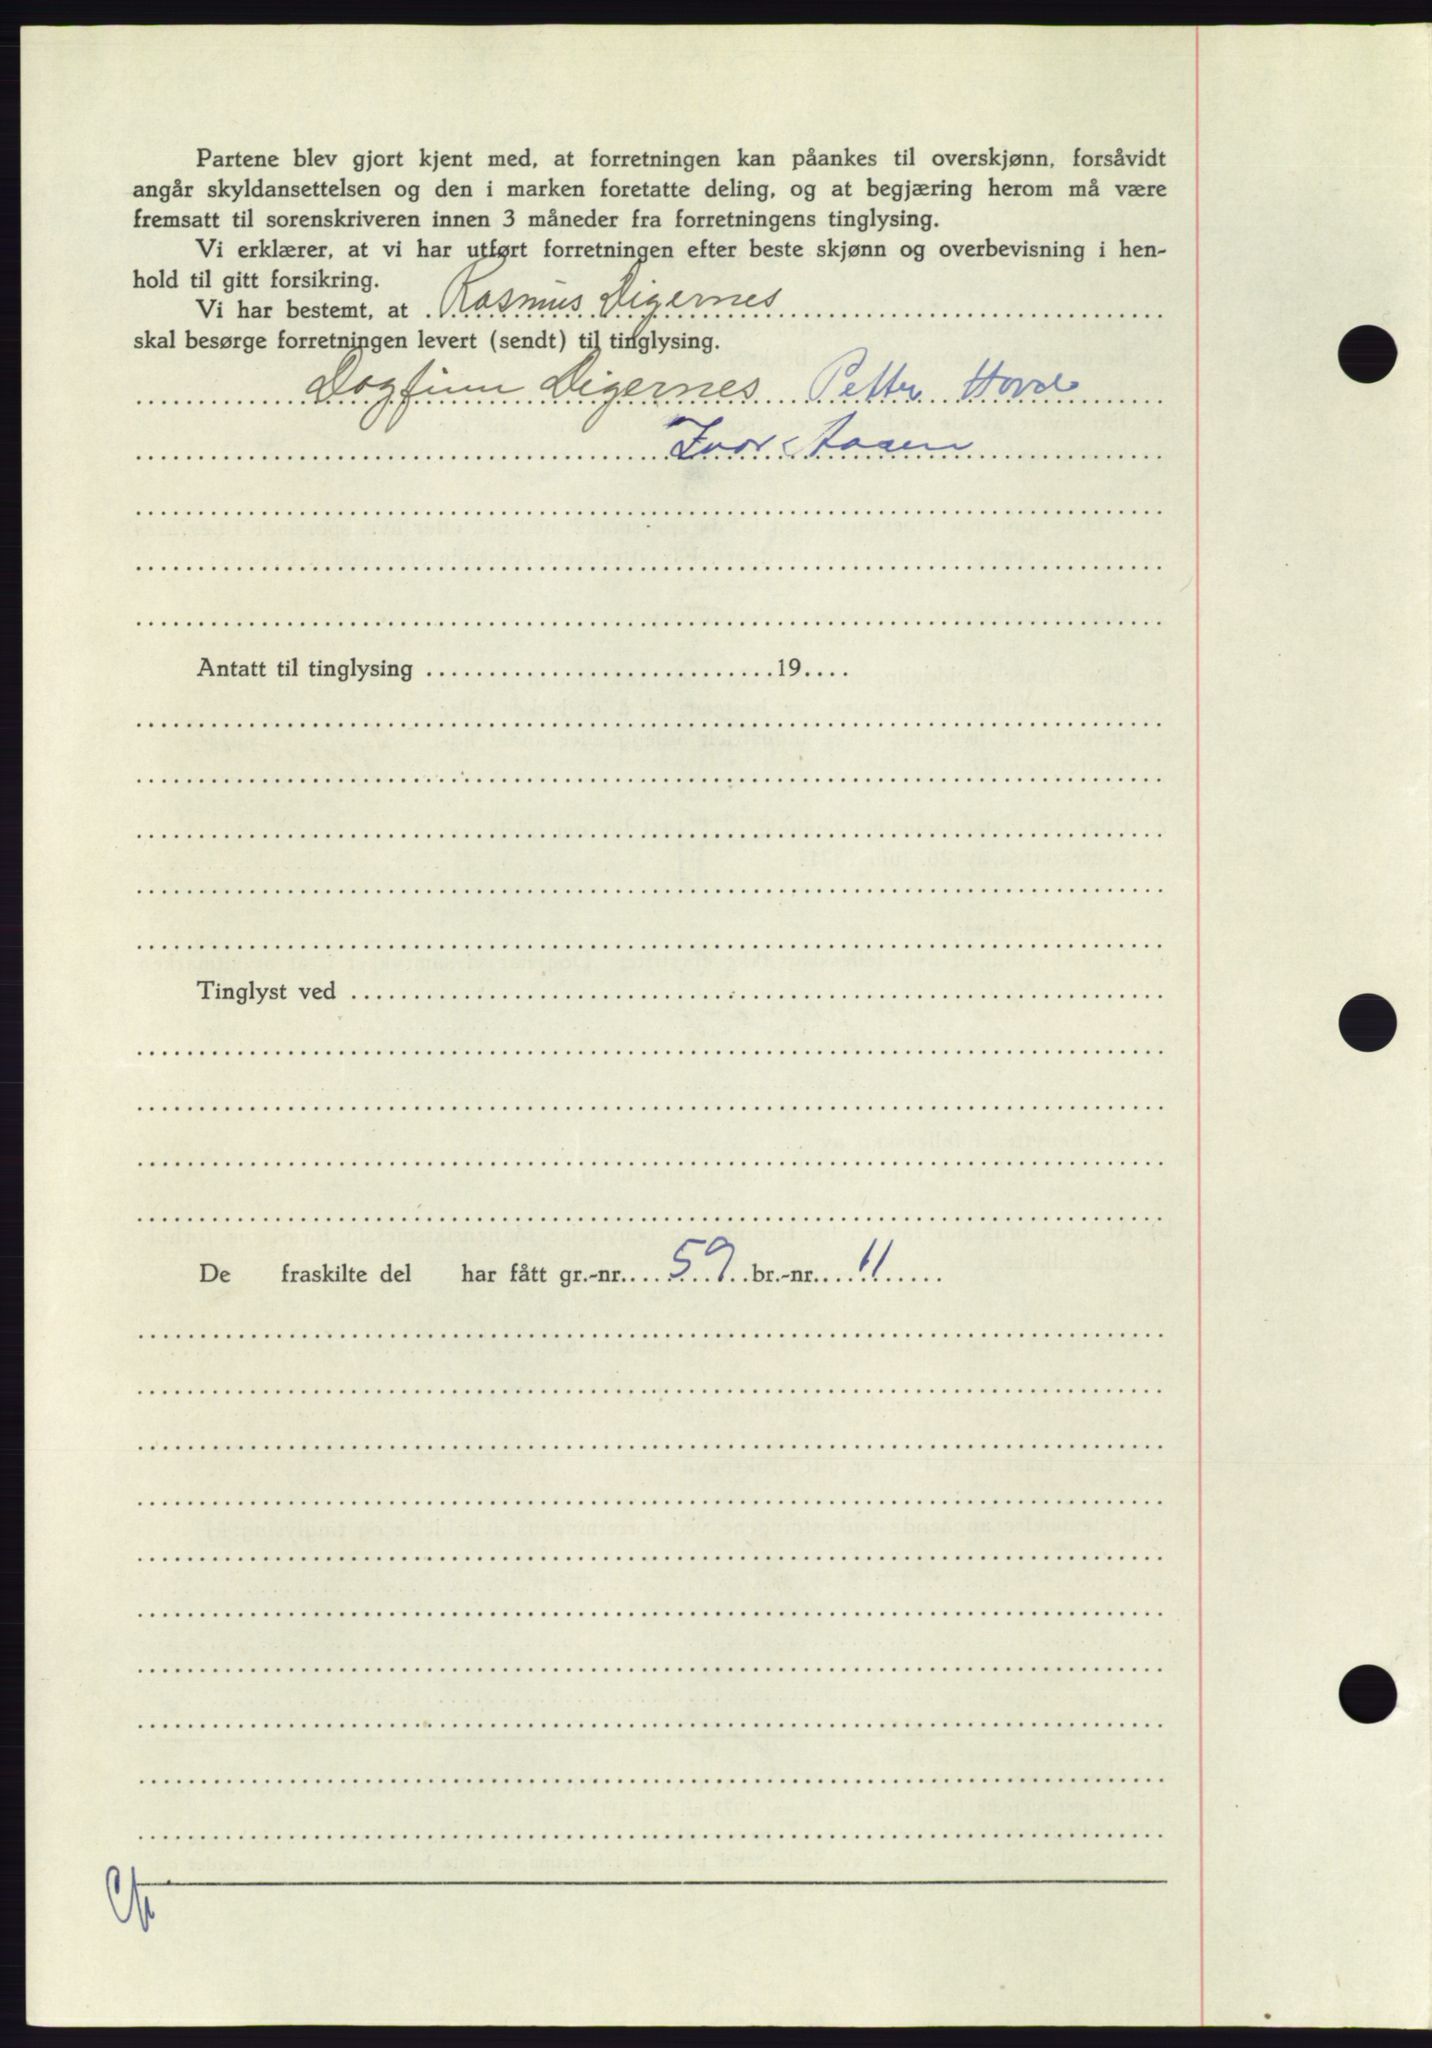 Partene blev gjort kjent med, at forretningen kan påankes til overskjønn, forsåvidt
angår skyldansettelsen og den i marken foretatte deling, og at begjæring herom må være
fremsatt til sorenskriveren innen 3 måneder fra forretningens tinglysing.
Vi erklærer, at vi har utført forretningen efter beste skjønn og overbevisning i hen-
hold til gitt forsikring.
Vi har bestemt, at Rasmus Digernes
skal besørge forretningen levert (sendt) til tinglysing.
Dagfinn Digernes Petter Hovde
Ivar Aasen
Antatt til tinglysing 19
Tinglyst ved
De fraskilte del har fått gr.-nr. 59 br.-nr. 11